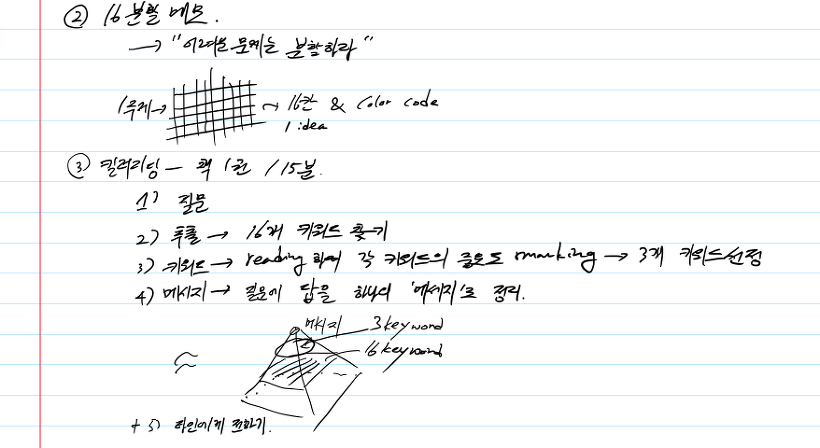 ② 16분할 메모.
→ "어려운 문제는 분할하라"
1주제 → → 16칸 & Color code
1 idea
③ 킬러리딩 — 책 1권 / 15분.
1) 질문
2) 후룹 → 16개 키워드 훑기
3) 키워드 → reading 하며 각 키워드의 중요도 marking → 3개 키워드 선정
4) 메시지 → 질문에 답을 하나의 '메세지'로 정리.
메시지
3 keyword
16 keyword
+ 5) 타인에게 전하기.